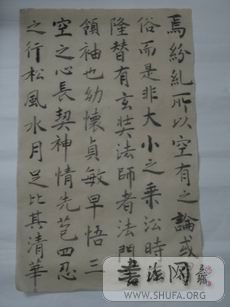 焉紛糺所以空有之論或
俗而是非大小之乘沁時
隆替有玄奘法師者法門
領袖也幼懷貞敏早悟三
空之心長契神情先苞四忍
之行松風水月足比其清華
書法网
www.SHUFA.ORG